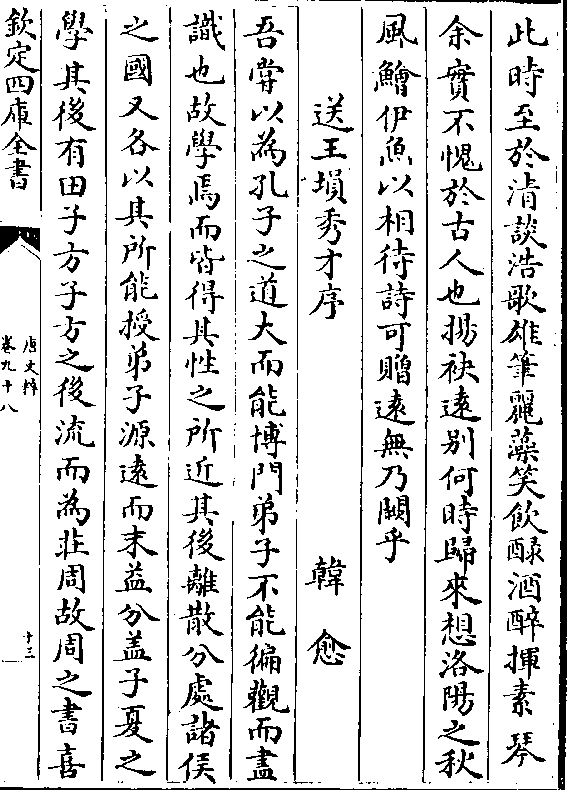 此時至於清談浩歌雄筆麗藻笑飲醁酒醉揮素琴
余實不愧於古人也揚袂逺别何時歸來想洛陽之秋
風鱠伊魚以相待詩可贈逺無乃闕乎
送王塤秀才序　韓愈
吾甞以為孔子之道大而能博門弟子不能徧觀而盡
識也故學焉而皆得其性之所近其後離散分處諸侯
之國又各以其所能授弟子源逺而末益分盖子夏之
學其後有田子方子方之後流而為莊周故周之書喜
欽定四庫全書
唐文粹
卷九十八
十三